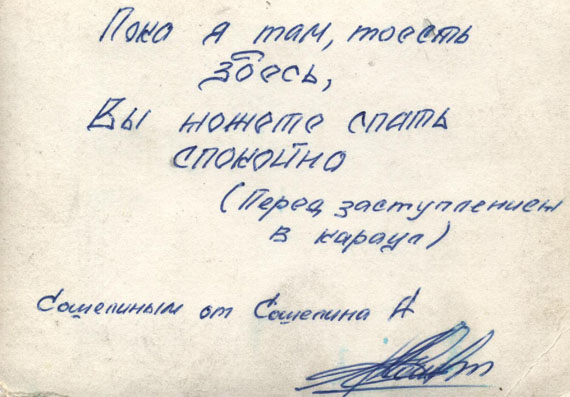 Пока я там, тоесть
здесь,
Вы можете спать
спокойно
(Перед заступлением
в караул)
Сошелиным от Сошелина А